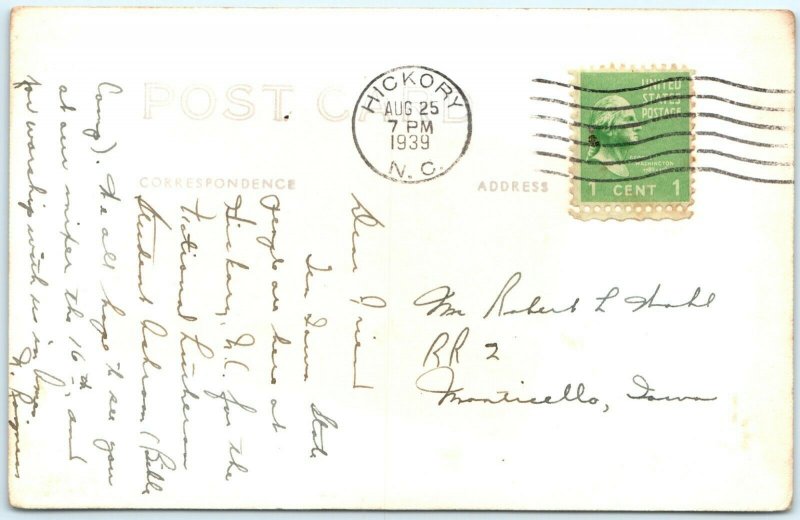 POST CARD
CORRESPONDENCE
ADDRESS
HICKORY
AUG 25
7 PM
1939
N. C.
UNITED
STATES
POSTAGE
GEORGE
WASHINGTON
1 CENT 1
Mr Robert L Hohl
RR 2
Monticello, Iowa
Dear Friend
Ten Iowa State
people are here at
Hickory, N.C. for the
National Lutheran
Student Ashram (Bible
Camp). We all hope to see you
at our mixer the 16th, and
for worship with us in Ames